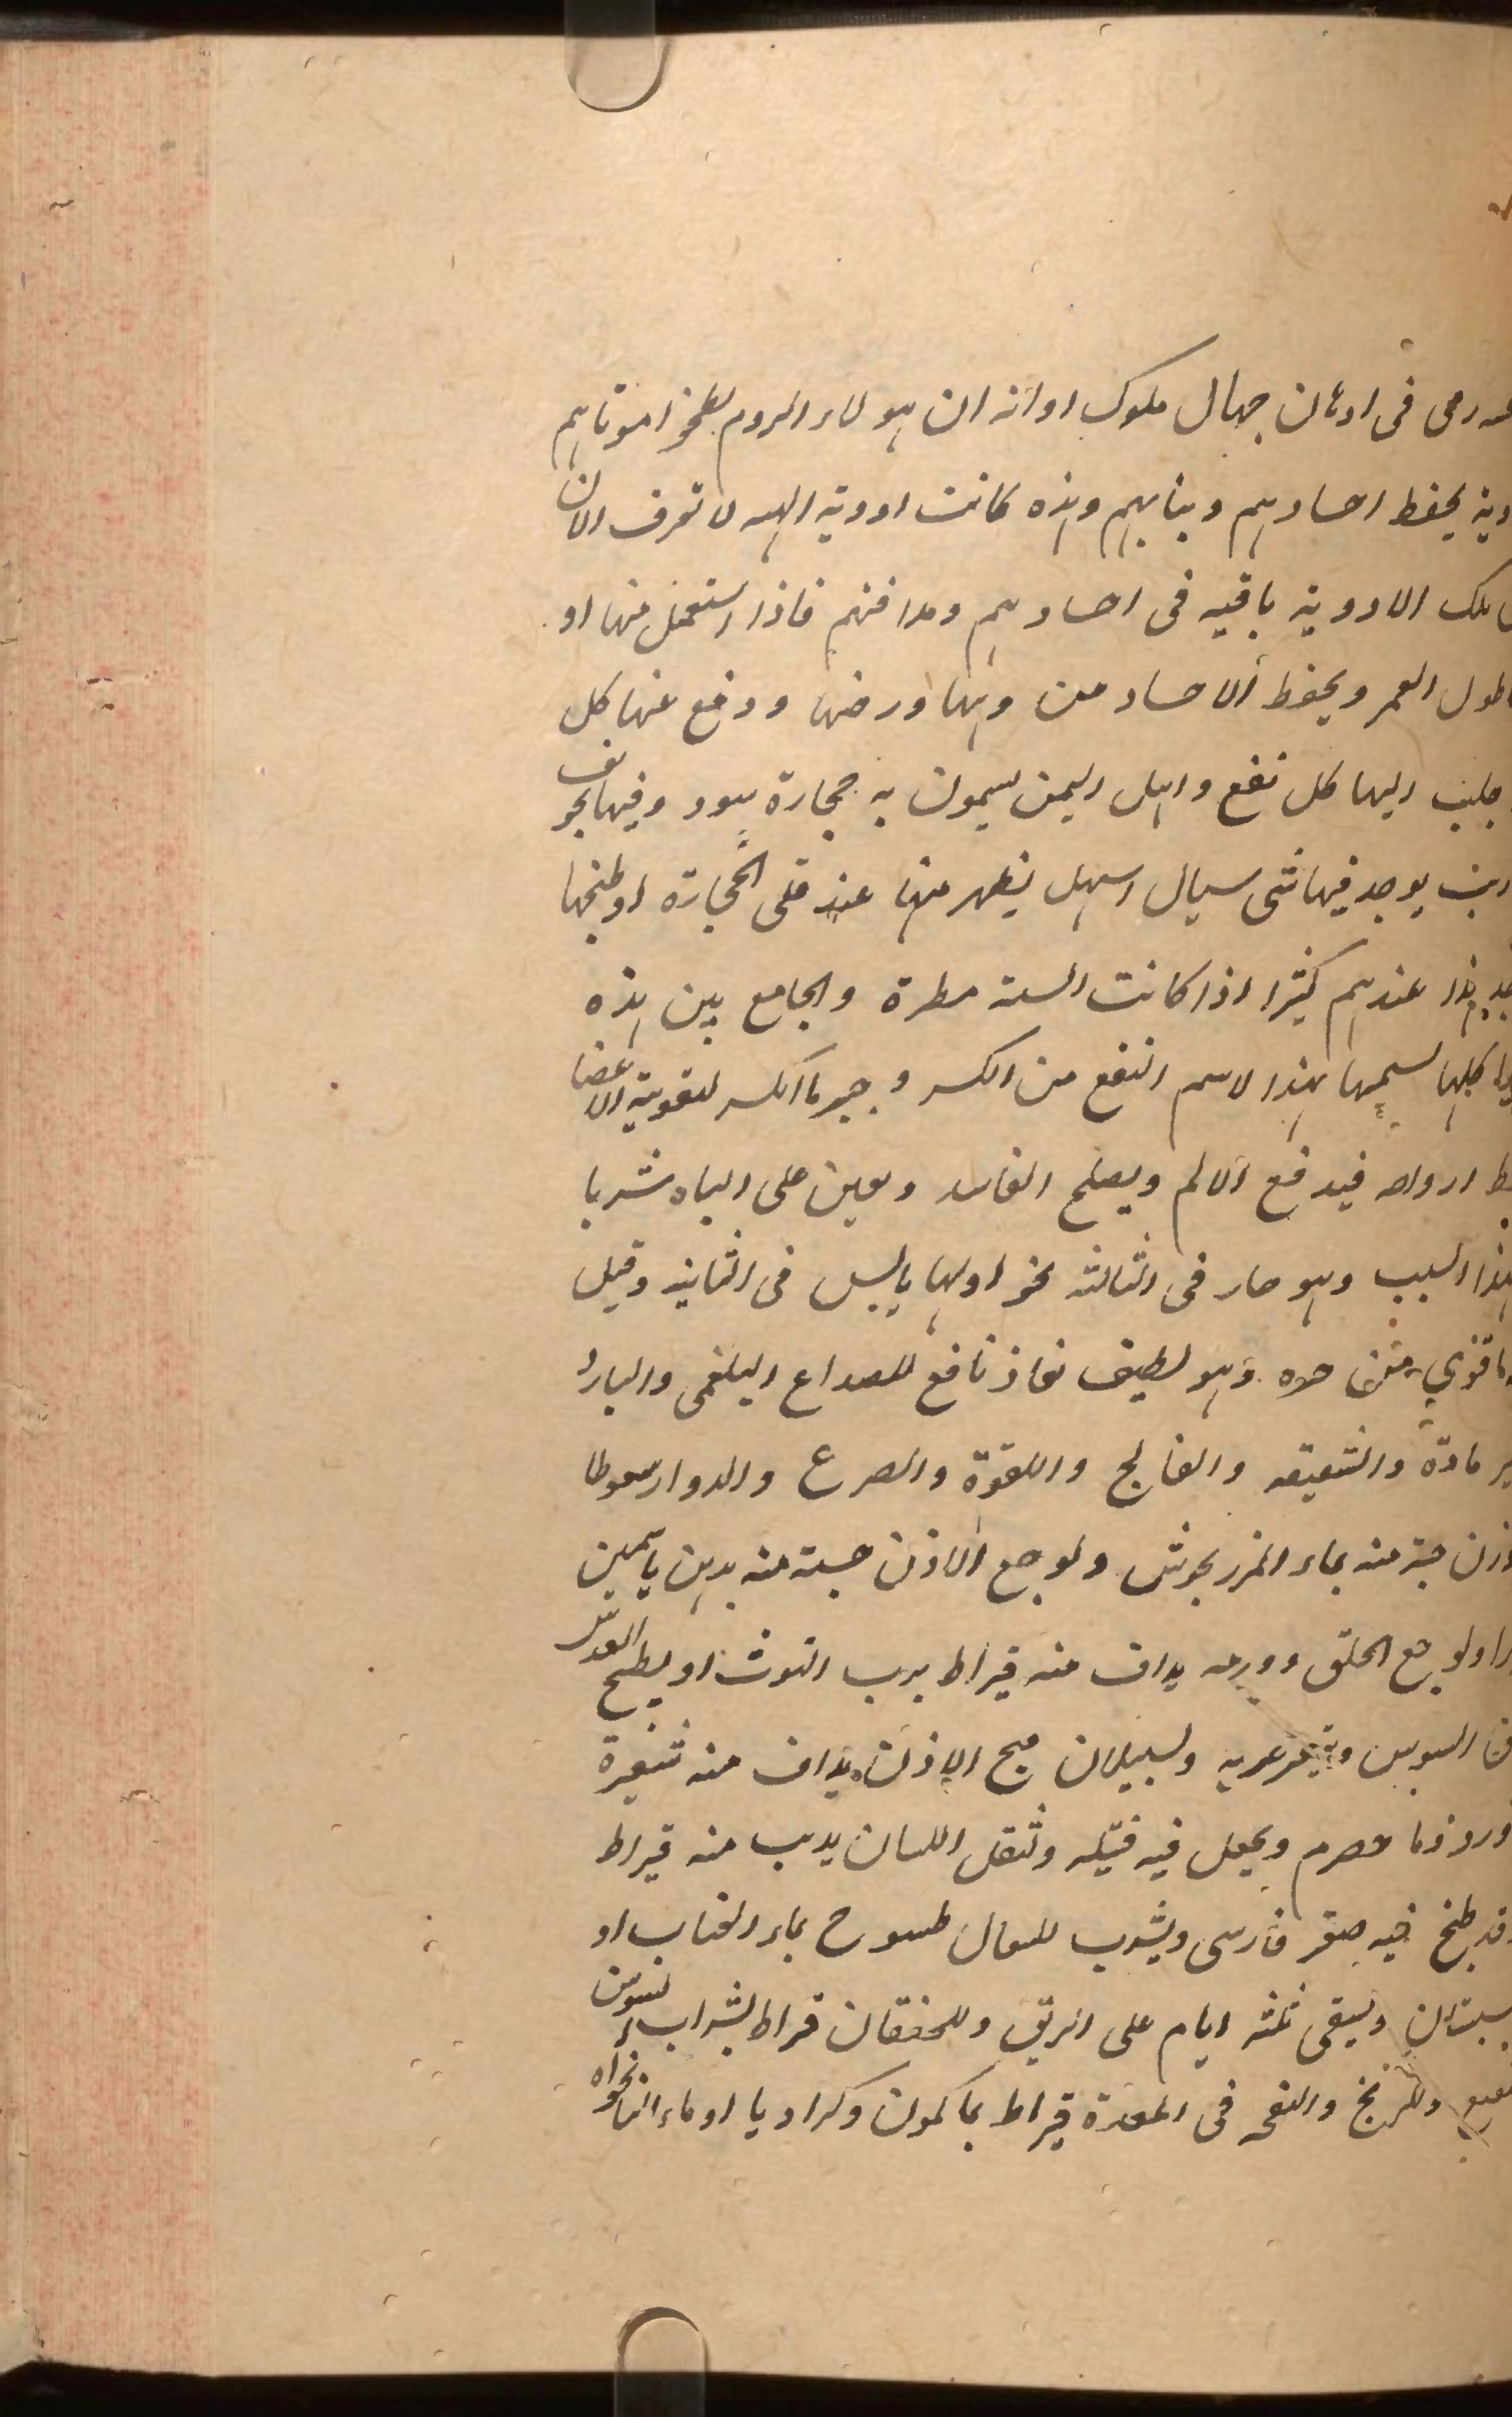 رمى فى اذهان جهال ملوك اوانه ان هولاء الروم لطخوا موتاهم
دية يحفظ اجسادهم وبنا بهم وهذه كانت ادوية الهيه لا تعرف الان
تلك الادوية باقيه فى اجسادهم ومدافنهم فاذا استعمل منها او
طول العمر ويحفظ الاجساد من وهنها ورضها ودفع عنها كل
جلب اليها كل نفع واهل اليمن يسمون به حجارة سود وفيها تجويف
يوجد فيها شى سيال اسهل يظهر منها عند قلى الحجارة او طبخها
هذا عندهم كثيرا اذا كانت السنة مطرة والجامع بين هذه
كلها لسميها بهذا لاسم النفع من الكسر وجبر ما انكسر لتقوية الاعضا
ارواحه فيدفع الالم ويصلح الفاسد ويعين على الباه شربا
هذا السبب وهو حار فى الثالثه نحو اولها يابس فى الثانيه وقيل
حده وهو لطيف نفاذ نافع للصداع البلغمى والبارد
مادة والشقيقه والفالج واللقوة والصرع والدوار سعوطا
وزن حبة منه بماء المرزنجوش ولوجع الاذن حبة منه بدهن ياسمين
ولوجع الحلق وورمه يداف منه قيراط برب التوث او بطبيخ العدس
السوس ولسيلان قيح الاذن يداف منه شعيرة
حصرم ويجعل فيه فتيله وثقل اللسان يديب منه قيراط
قد طبخ فيه صعتر فارسى ويشرب للسعال طسوج بماء العناب او
سبستان ويسقى ثلثه ايام على الريق وللخفقان قراط بشراب نسوس
وللريح والنفخ فى المعدة قيراط بما كمون وكراويا او ماء النانخواه